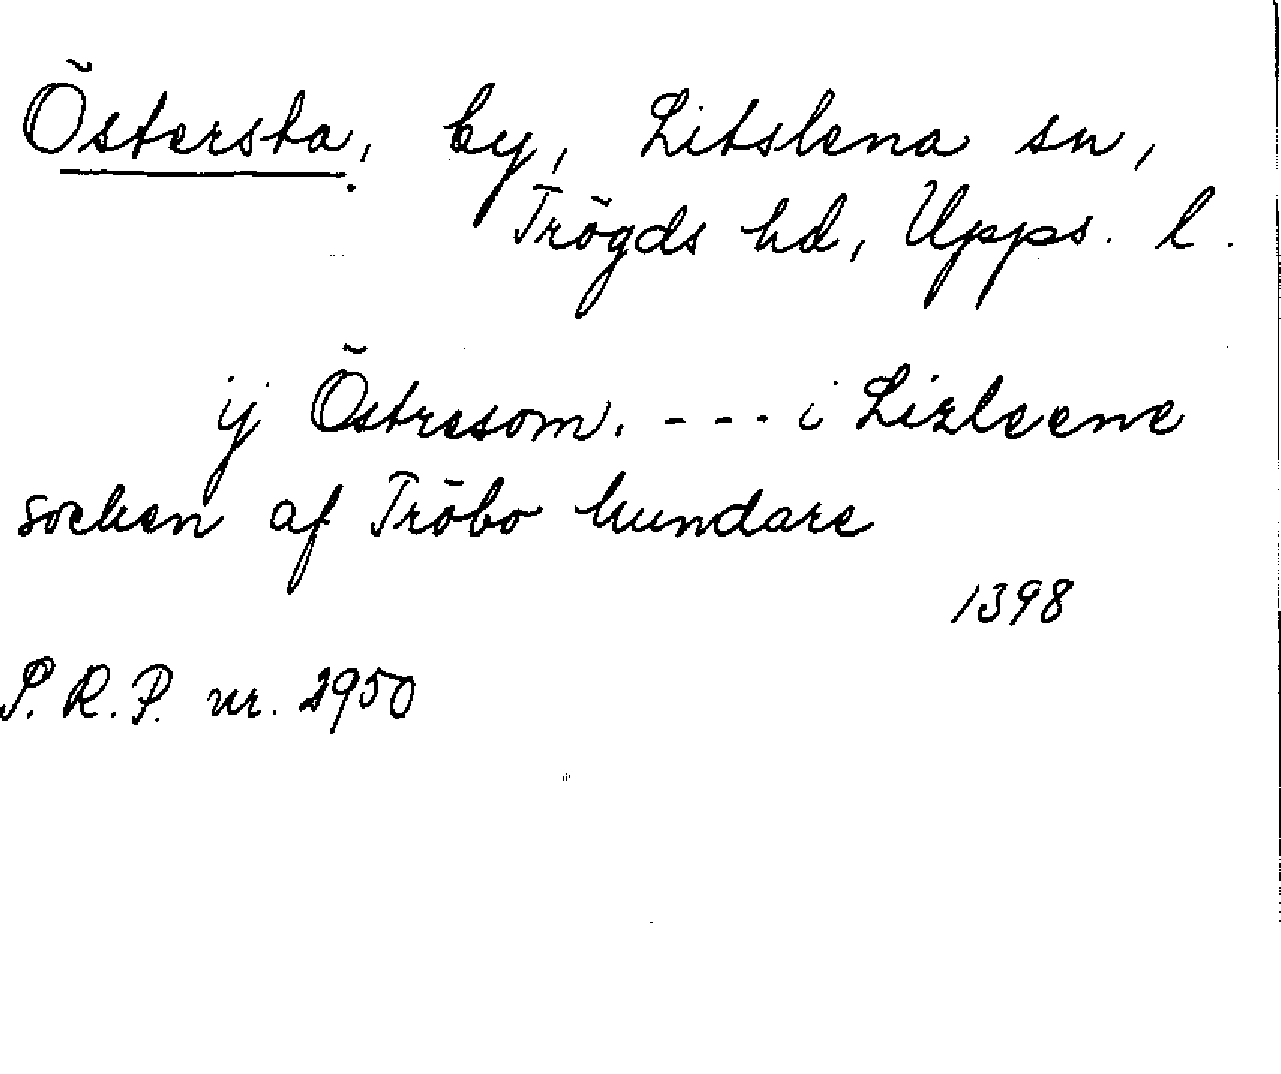 Östersta, by, Litslena sn,
Trögds hd, Upps. l.
ij Östresom. - - - i Lizleene
socken af Tröbo hundare
1398
S.R.P. nr. 2950